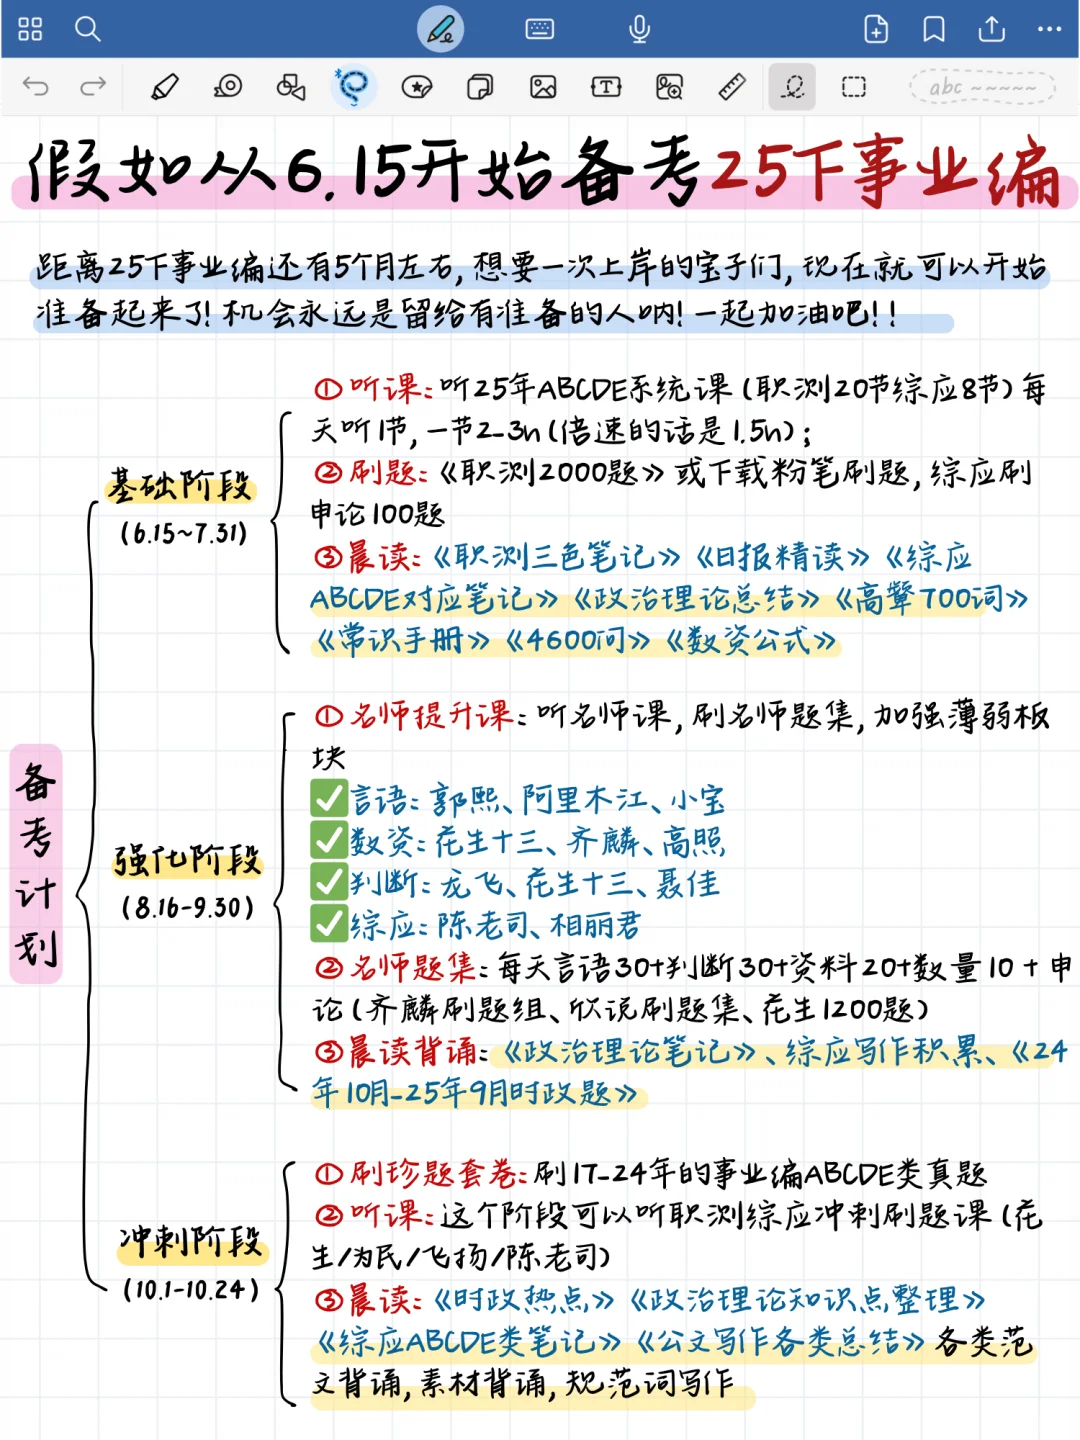 abc ~~~~~
假如从6.15开始备考25下事业编
距离25下事业编还有5个月左右,想要一次上岸的宝子们,现在就可以开始
准备起来了!机会永远是留给有准备的人呐!一起加油吧!!
备考计划
基础阶段
(6.15~7.31)
①听课:听25年ABCDE系统课(职测20节综应8节)每
天听1节,一节2-3h(倍速的话是1.5h);
②刷题:《职测2000题》或下载粉笔刷题,综应刷
申论100题
③晨读:《职测三色笔记》《日报精读》《综应
ABCDE对应笔记》《政治理论总结》《高颦700词》
《常识手册》《4600问》《数资公式》
强化阶段
(8.16-9.30)
①名师提升课:听名师课,刷名师题集,加强薄弱板
块
✅言语:郭熙、阿里木江、小宝
✅数资:花生十三、齐麟、高照
✅判断:龙飞、花生十三、聂佳
✅综应:陈老司、相丽君
②名师题集:每天言语30+判断30+资料20+数量10+申
论(齐麟刷题组、欣说刷题集、花生1200题)
③晨读背诵:《政治理论笔记》、综应写作积累、《24
年10月-25年9月时政题》
冲刺阶段
(10.1-10.24)
①刷珍题套卷:刷17-24年的事业编ABCDE类真题
②听课:这个阶段可以听职测综应冲刺刷题课(花
生/为民/飞扬/陈老司)
③晨读:《时政热点》《政治理论知识点整理》
《综应ABCDE类笔记》《公文写作各类总结》各类范
文背诵,素材背诵,规范词写作